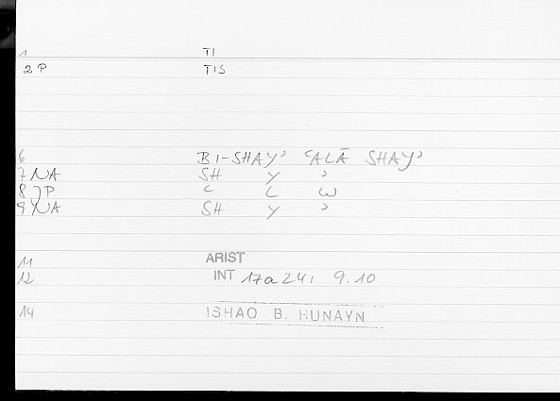 1 TI
2 P TIS
6 BI-SHAY' 'ALĀ SHAY'
7 NA SH Y '
8 P ' L W
9 NA SH Y '
11 ARIST
12 INT 17a24; 9.10
14 ISHAQ B. HUNAYN